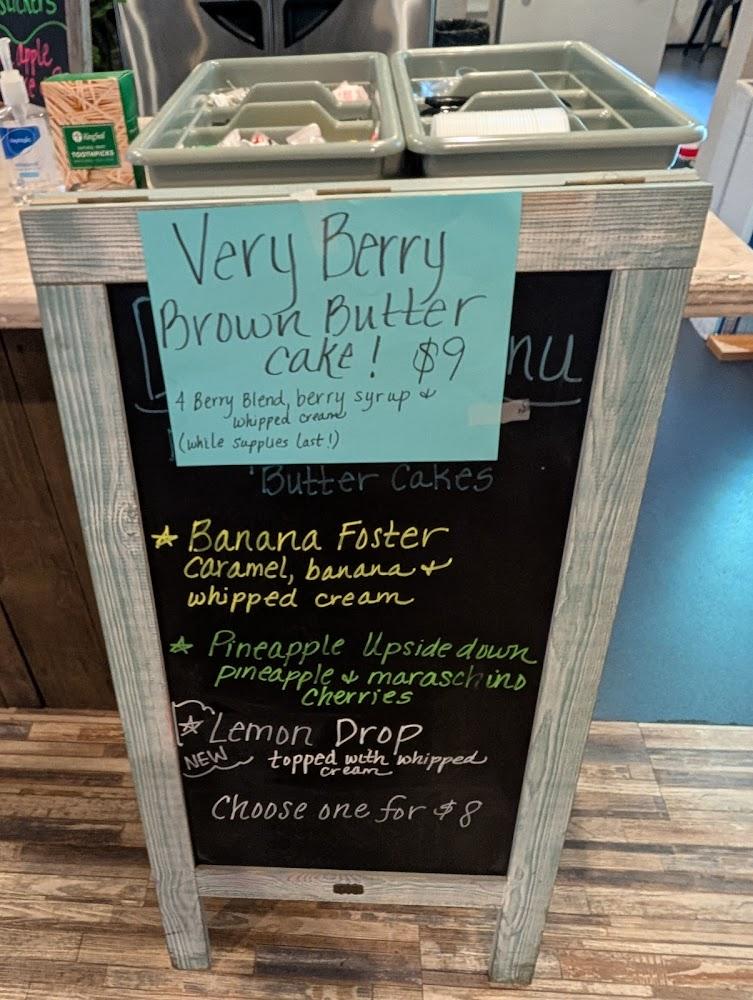 apple
KingSeal
TOOTHPICKS
Very Berry
Brown Butter
cake! $9
4 Berry Blend, berry syrup &
whipped cream
(while supplies last!)
nu
Butter Cakes
☆ Banana Foster
Caramel, banana &
whipped cream
☆ Pineapple Upside down
pineapple & maraschino
Cherries
☆ Lemon Drop
NEW topped with whipped
cream
Choose one for $8